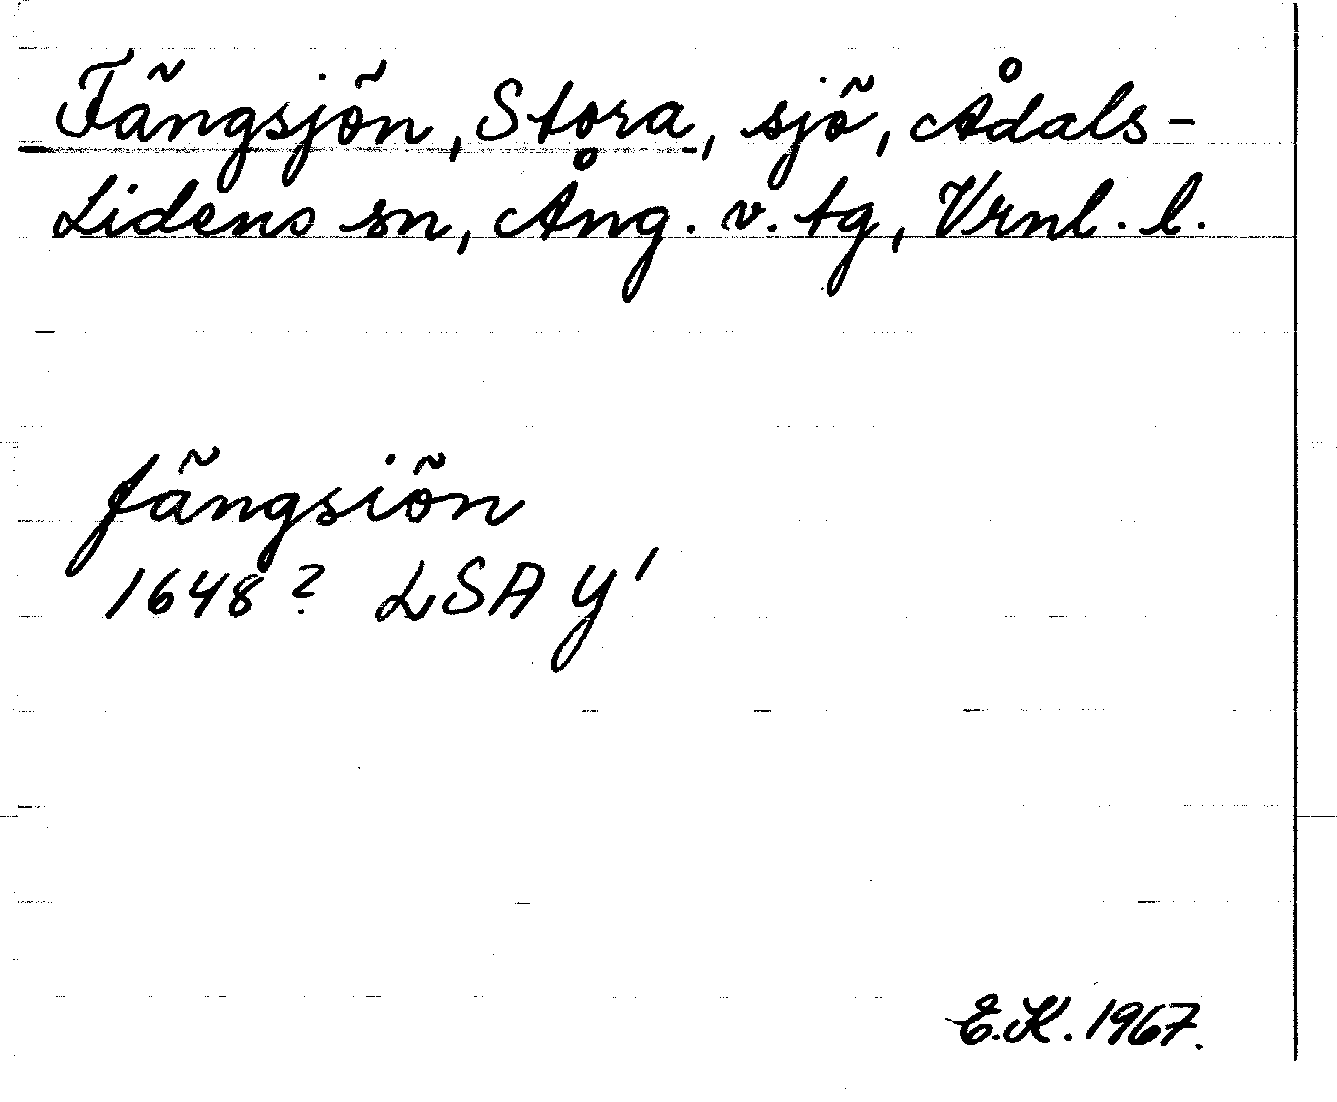 Fängsjön, Stora, sjö, Ådals-
Lidens sn, Ång. v. tg, Vrnl. l.
fängsiön
1648? LSA Y'
E.K. 1967.